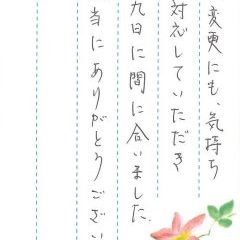 変更にも、気持ち
対応していただき
九日に間に合いました。
当にありがとうござい